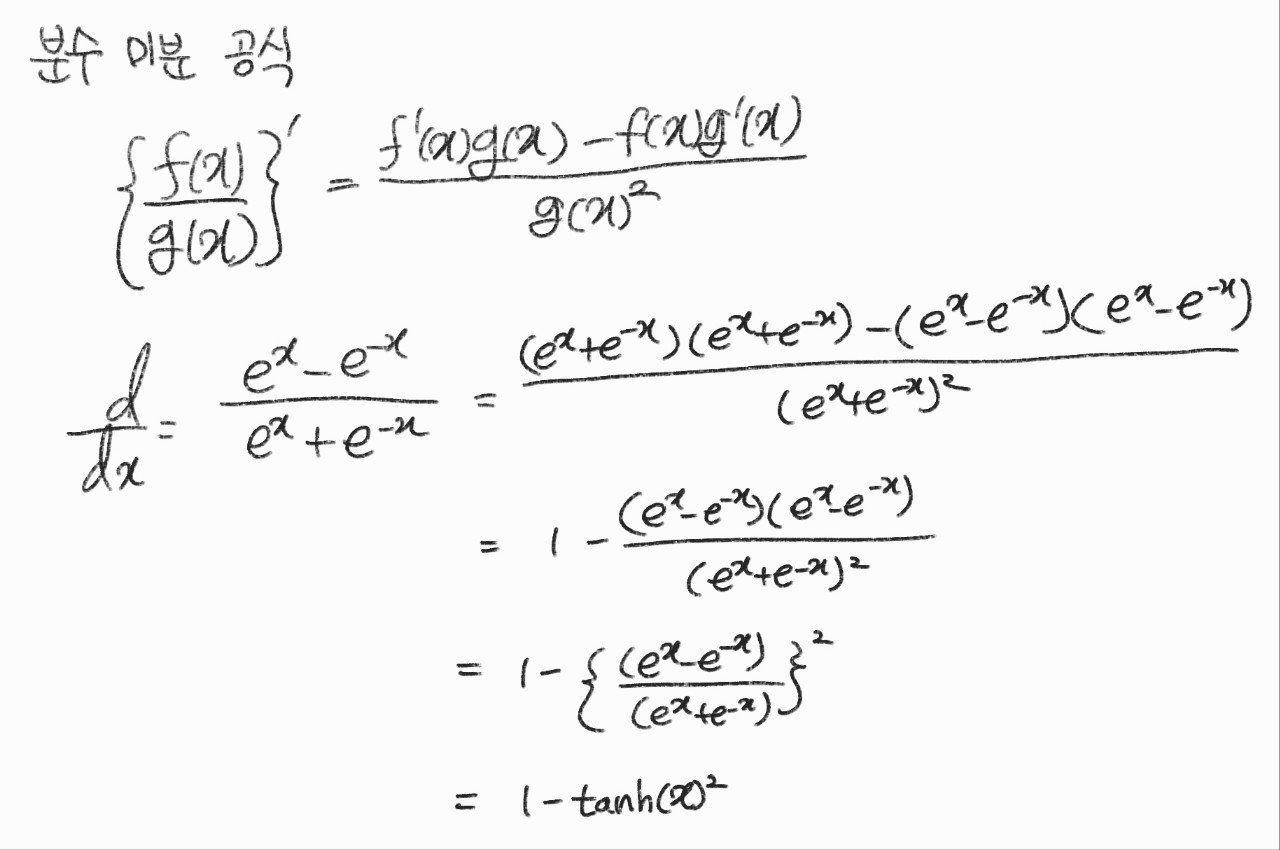 분수 미분 공식
{f(x)/g(x)}' = (f'(x)g(x) - f(x)g'(x))/g(x)²
d/dx = (eˣ - e⁻ˣ)/(eˣ + e⁻ˣ) = ((eˣ+e⁻ˣ)(eˣ+e⁻ˣ) - (eˣ-e⁻ˣ)(eˣ-e⁻ˣ))/(eˣ+e⁻ˣ)²
= 1 - ((eˣ-e⁻ˣ)(eˣ-e⁻ˣ))/(eˣ+e⁻ˣ)²
= 1 - {(eˣ-e⁻ˣ)/(eˣ+e⁻ˣ)}²
= 1 - tanh(x)²